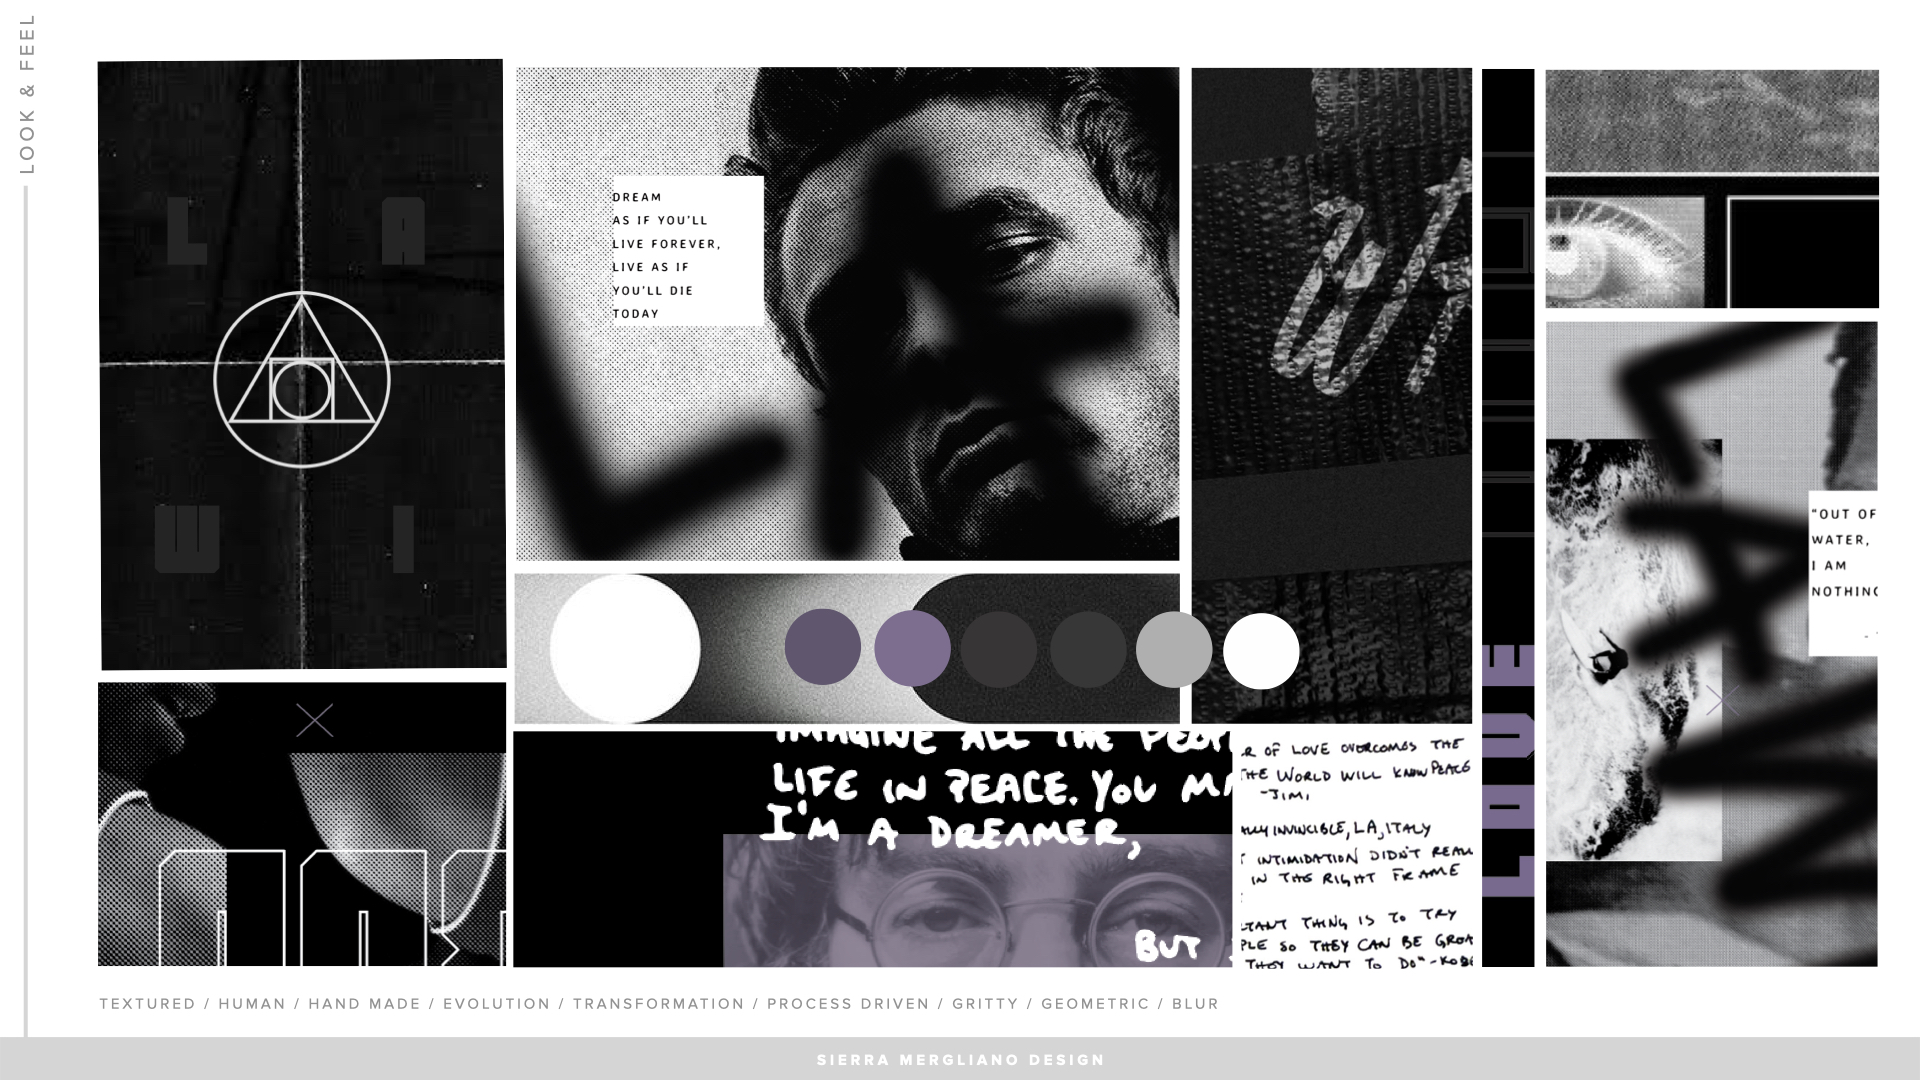 LOOK & FEEL
L A
W I
DREAM
AS IF YOU'LL
LIVE FOREVER,
LIVE AS IF
YOU'LL DIE
TODAY
"OUT OF
WATER,
I AM
NOTHING
LOVE
IMAGINE ALL THE PEOPL
LIFE IN PEACE. YOU MA
I'M A DREAMER,
BUT
R OF LOVE OVERCOMES THE
THE WORLD WILL KNOW PEACE
-JIMI
INVINCIBLE, LA, ITALY
INTIMIDATION DIDN'T REALL
IN THE RIGHT FRAME
TANT THING IS TO TRY
PLE SO THEY CAN BE GREA
THEY WANT TO DO" -KOBE
TEXTURED / HUMAN / HAND MADE / EVOLUTION / TRANSFORMATION / PROCESS DRIVEN / GRITTY / GEOMETRIC / BLUR
SIERRA MERGLIANO DESIGN